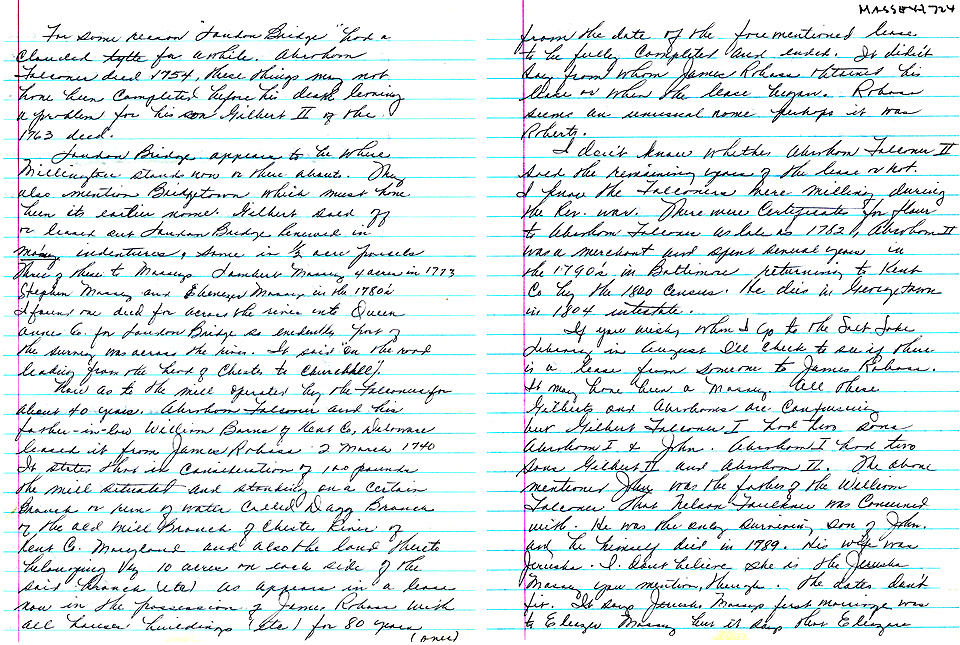 MASSEY 724
For some reason "London Bridge" had a
clouded tytle for awhile. Abrahom
Falconer died 1754, these things may not
have been completed before his death leaving
a problem for his son Gilbert II of the
1763 deed.
London Bridge appears to be where
Millington stands now or there abouts. They
also mention Bridgetown which must have
been its earlier name. Gilbert sold off
or leased out London Bridge Renewed in
many indentures, some in ½ acre parcels
Three of these to Masseys Lambert Massey 4 acres in 1773
Stephen Massey and Ebenezer Massey in the 1780's
I found one deed for across the river into Queen
Annes Co. for London Bridge so evidently part of
the survey was across the river. It said "on the road
leading from the head of Chester to Churchhill).
Now as to the mill operated by the Falconers for
about 40 years. Abrohom Falconer and his
father-in-low William Barns of Kent Co, Delaware
leased it from James Robass 2 March 1740
It states that in consideration of 100 pounds
the mill situated and standing on a certain
Branch or run of water called Dagg Branch
of the old mill Branch of Chester River of
Kent Co. Maryland and also the land thereto
belonging Viz 10 acres on each side of the
said branch (etc) as appears in a lease
now in the possession of James Robass with
all houses buildings (etc) for 80 years
(over)
from the date of the forementioned lease
to be fully completed and ended. It didn't
say from whom James Robass obtained his
lease or when the lease began. Robass
seems an unusual name perhaps it was
Roberts.
I don't know whether Abrohom Falconer II
sold the remaining years of the lease or not.
I know the Falconers were milling during
the Rev. war. There were Certificates for flour
to Abrohom Falconer as late as 1782, Abrohom II
was a merchant and spent several years in
the 1790's in Baltimore returning to Kent
Co by the 1800 census. He dies in Georgetown
in 1804 intestate.
If you wish, when I go to the Salt Lake
Library in August I'll check to see if there
is a lease from someone to James Robass.
It may have been a Massey. All these
Gilberts and Abrahoms are confusing
but Gilbert Falconer I had two sons
Abrohom I & John. Abrohom I had two
sons Gilbert II and Abrohom II. The above
mentioned John was the father of the William
Falconer that Nelson Faulkner was concerned
with. He was the only surviving son of John.
and he himself died in 1789. His wife was
Jerusha. I don't believe she is the Jerusha
Massey you mention, though. The dates don't
fit. It says Jerusha Masseys first marriage was
to Eleazer Massey but it says that Eleazer